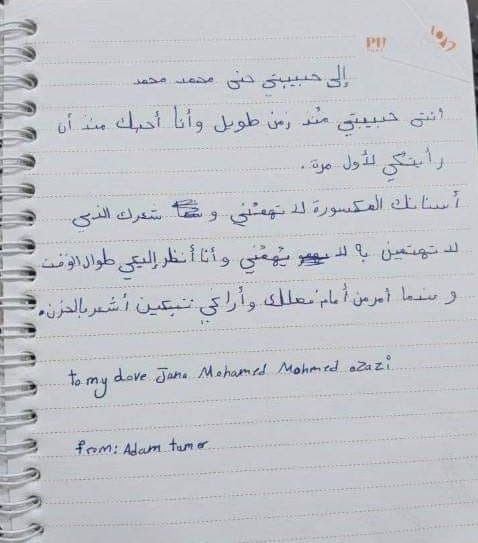 إلى حبيبتي جنى محمد محمد
أنتى حبيبتي مُنذ زمن طويل وأنا أحبك منذ أن
رأيتكي لأول مرة.
أسنانك المكسورة لا تهمُني و شعرك الذى
لا تهتمين به لا يهمُني وأنا أنظر إليكي طوال الوقت
و عندما أمر من أمام فصلك وأراكي تبكين أشعر بالحزن.
to my dove Jana Mohamed Mohmed
from: Adam tamer